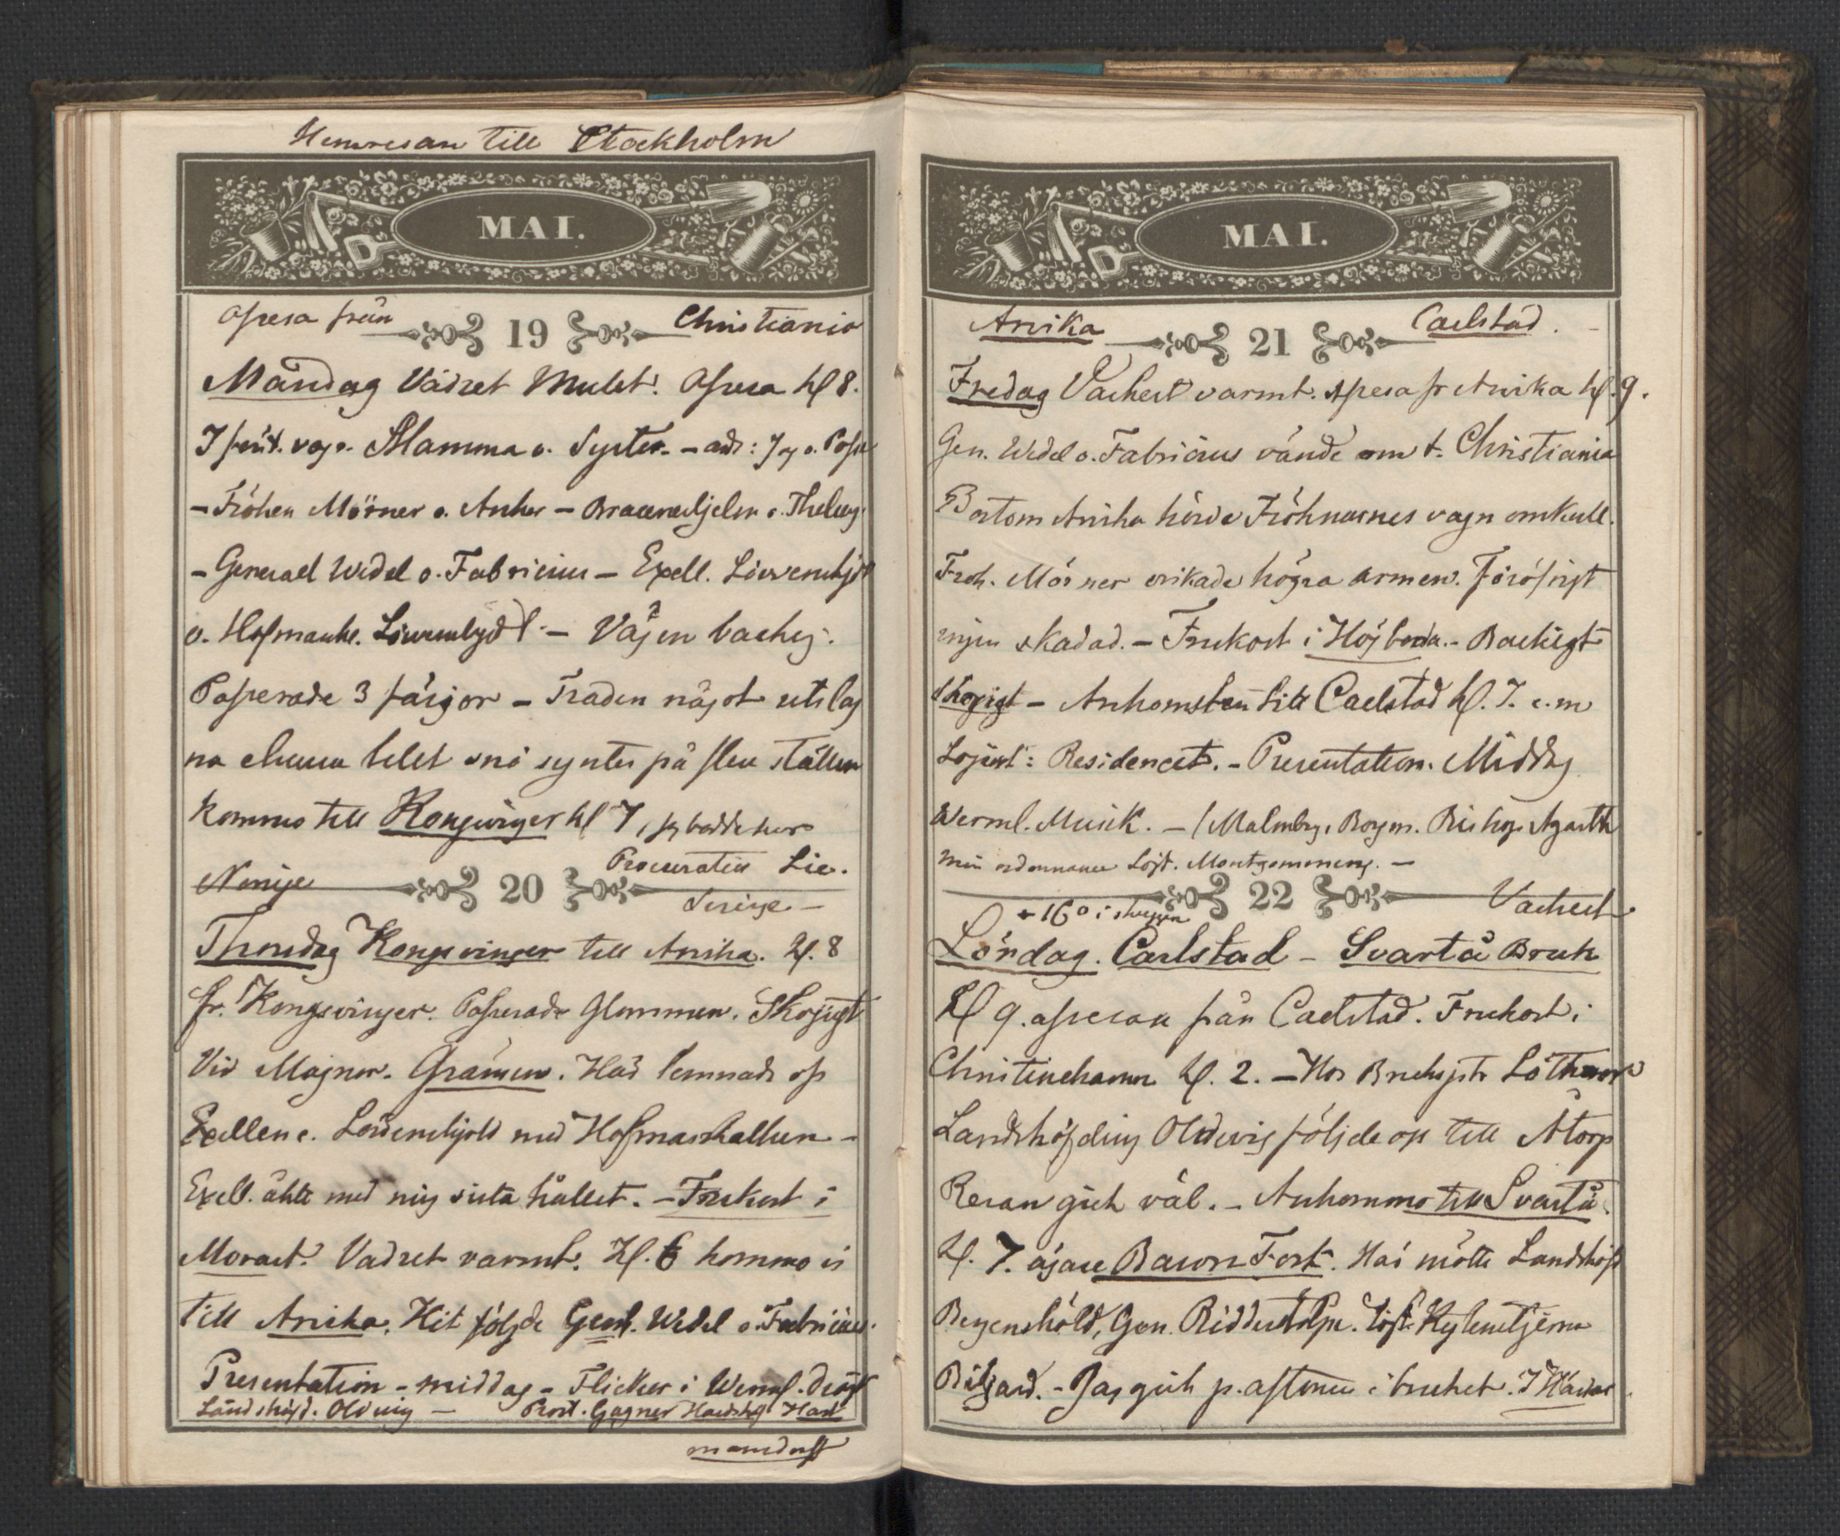 Hemresan till Stockholm
MAI.
Afresa från 19 Christiania
Måndag Vädret Mulet. Afresa kl 8.
I först. vagn. Mamma o. Syster. – and: Jag o.
– Fröken Mörner o. Anker –
– General Wedel o. Fabricius – Exell. Löwenskjöld
o. Hofmarsk. Löwenskjöld – Vägen backig.
Passerade 3 färjor – Träden något utslag
na ehuru litet snö syntes på flera ställen
kommo till Kongsvinger kl 7, jag bodde hos
Procurator Lie.
Norige 20 Sverige –
Thorsdag Kongsvinger till Arvika. Kl. 8
fr. Kongsvinger. Passerade Glommen. Skogigt
Vid Magnor. Gränsen. Här lemnade oss
Exellenc. Löwenskjold med Hofmarskalken –
Exell. åkte med mig sista hållet. – Frukost i
Morast. Vädret varmt. Kl. 6 kommo vi
till Arvika. Hit följde Genl. Wedel o. Fabricius.
Presentation – middag – Flickor i Werml. drägt
Landshöfd. Oldvig – Prost. Gagner Häradshöf
MAI.
Arvika 21 Carlstad.
Fredag Vackert varmt. Afresa fr Arvika kl. 9.
Gen. Wedel o. Fabricius vände om t. Christiania
Bortom Arvika körde Fröknarnes vagn omkull.
Frök. Mörner vrikade högra armen. Föröfrigt
ingen skadad. – Frukost i Högboda. – Backigt
Skogigt – Ankomsten till Carlstad kl. 7. e.m
Logerat: Residencet. – Presentation. Middag
Werml. Musik. – (Malmborg, Biskop Agardh
min ordonnance Löjt. Montgommery. –
22 Vackert
+ 16° i skuggan
Lördag. Carlstad – Svartå Bruk
Kl 9. afresan från Carlstad. Frukost i
Christinehamn kl. 2. – Hos Brukspatr
Landshöfding Oldevig följde oss till Åtorp
Resan gick väl. – Ankommo till Svartå.
Kl. 7. ägare Baron Fock. Här mötte Landshöfd
Bergensköld, Gen. Ridderstolpe. Löjt. Kylenstjerna
Biljard. – Jag gick p. aftonen i bruket.